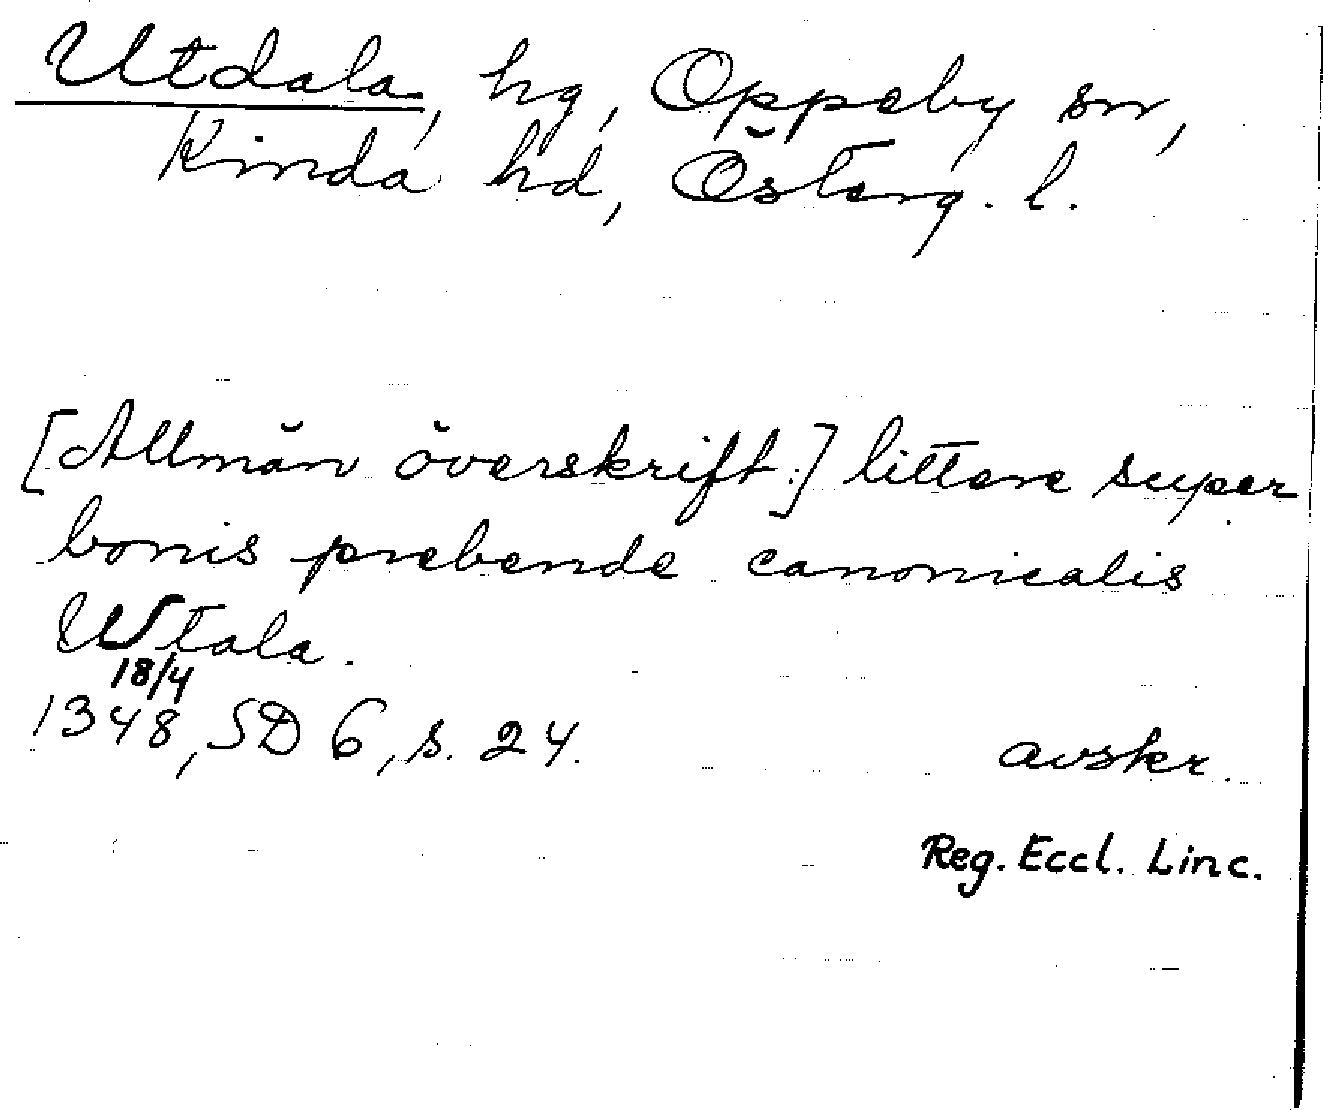 Utdala, hg, Oppeby sn,
Kinda hd, Österg. l.
[Allmän överskrift:] littere super
bonis prebende canonicalis
Wtala.
18/4
1348, SD 6, s. 24. avskr.
Reg. Eccl. Linc.